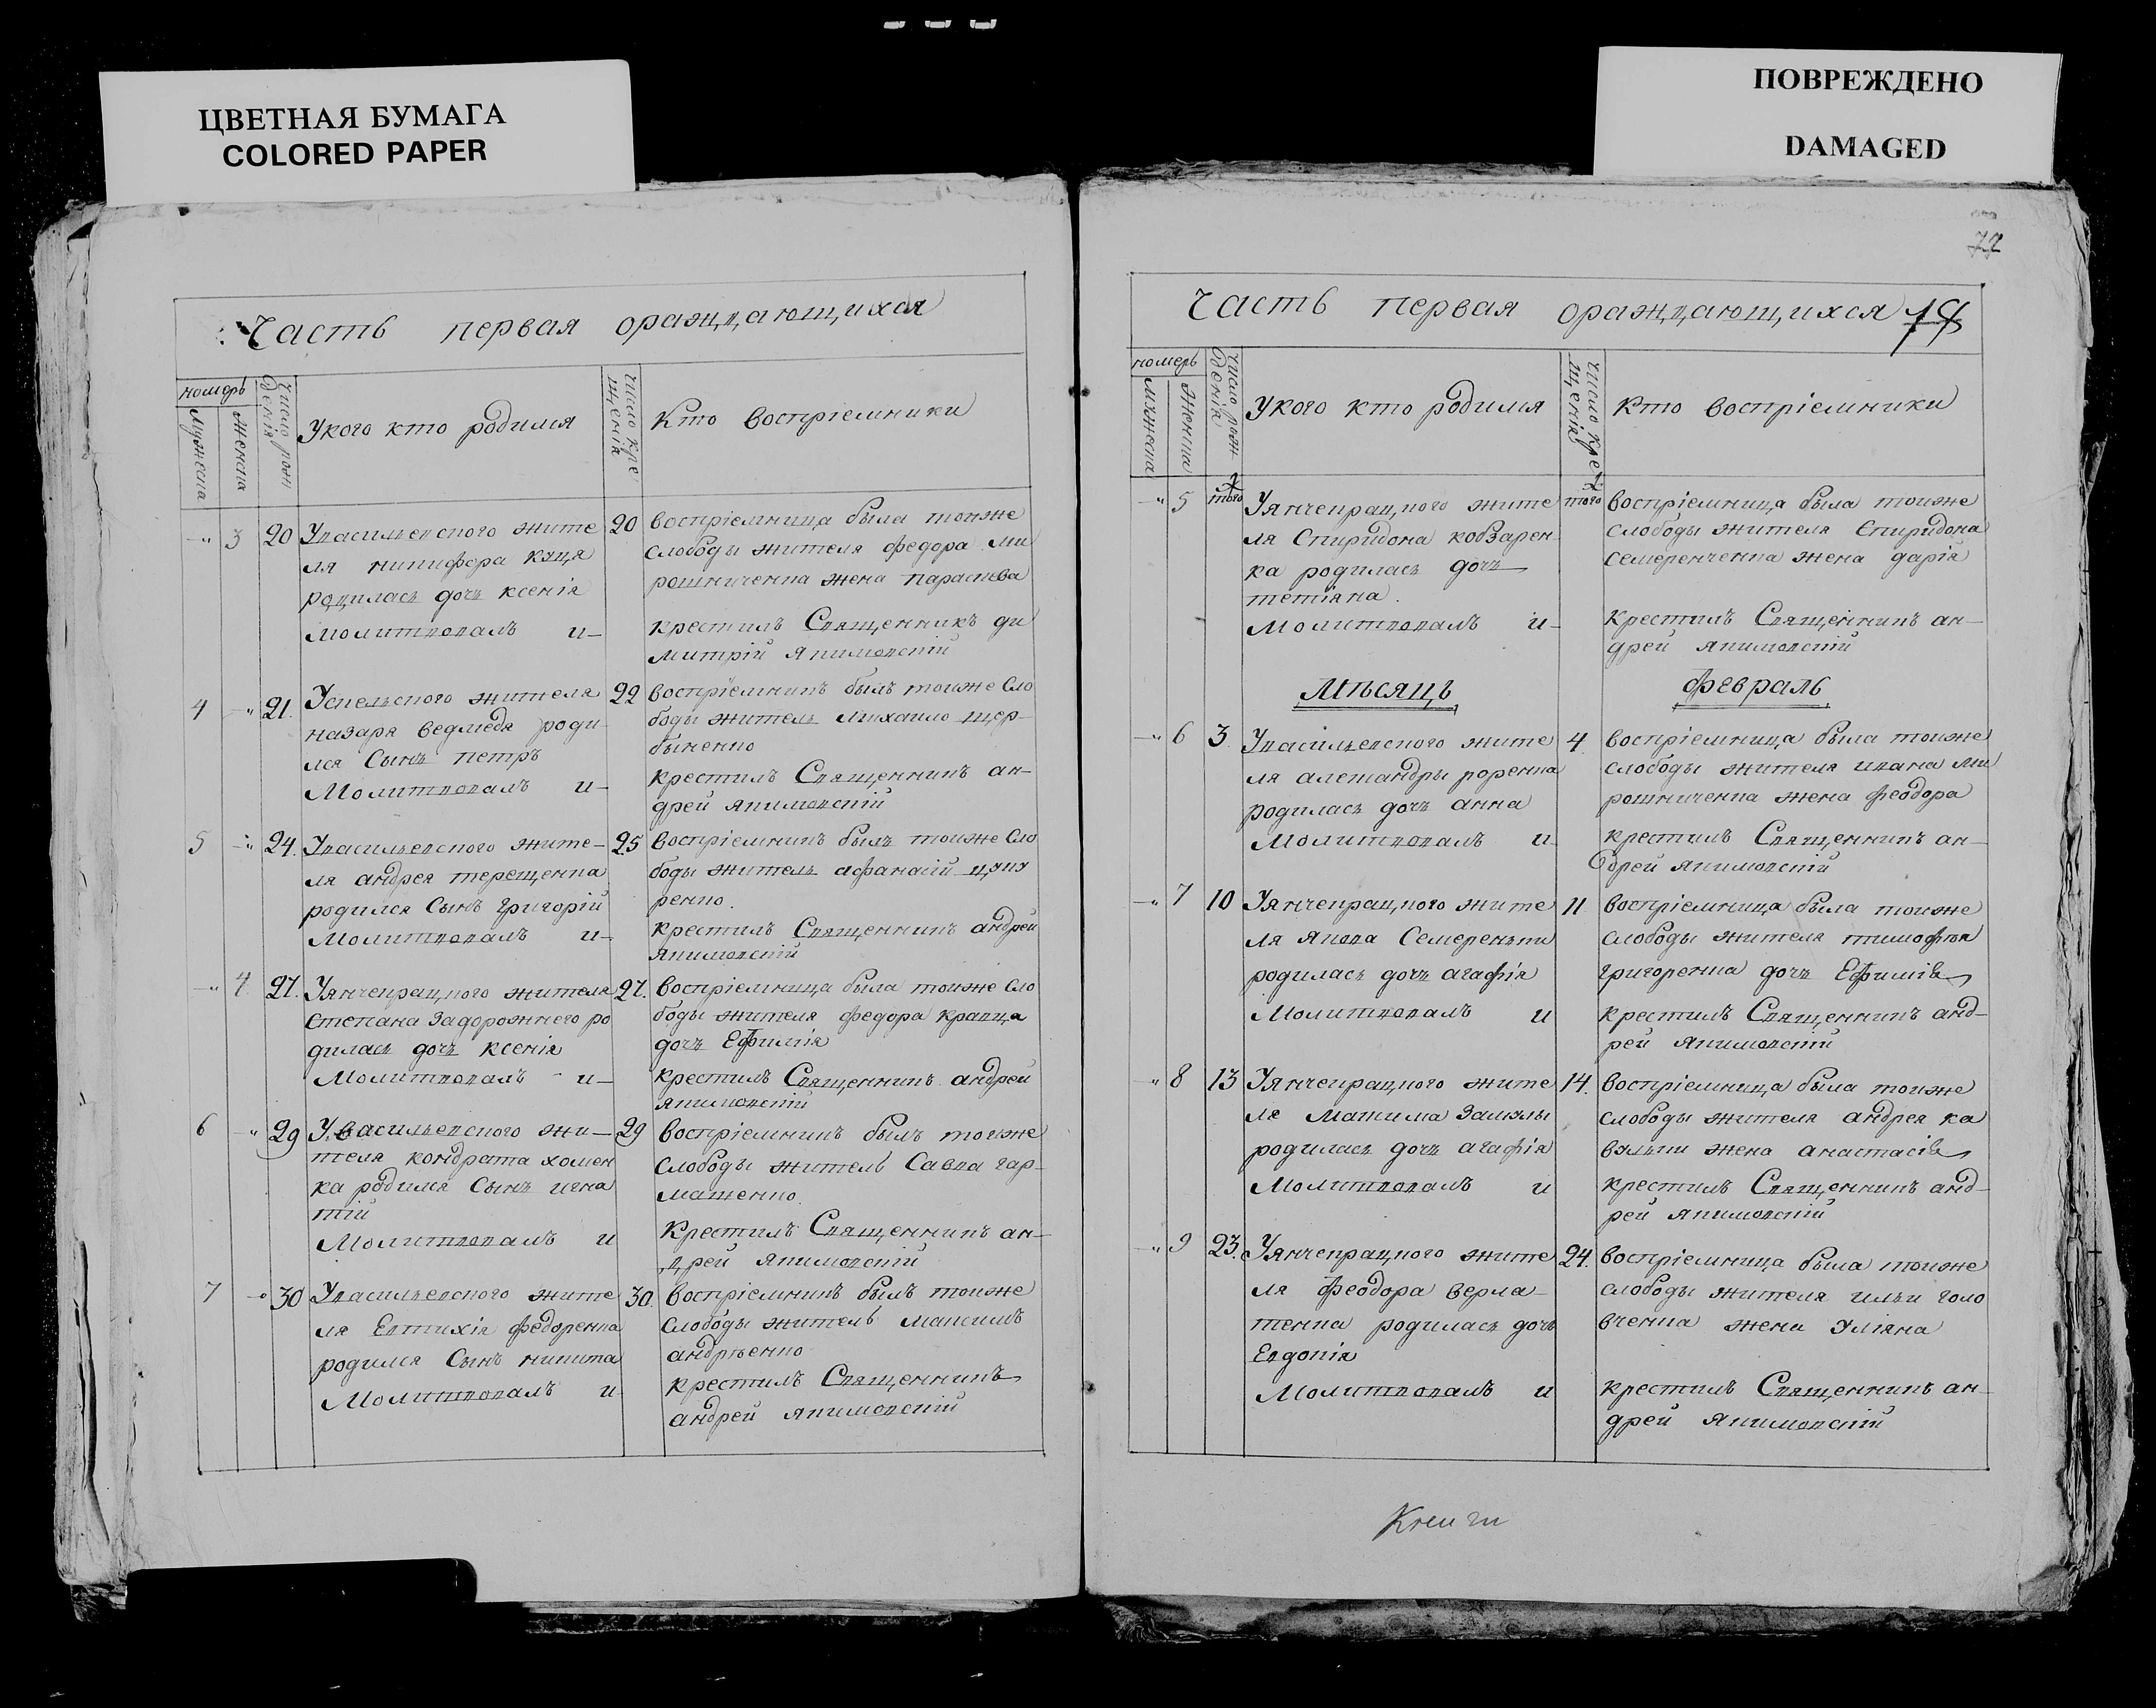 ЦВЕТНАЯ БУМАГА
COLORED PAPER
Часть первая ораждающихся
номеръ
мужеска
женска
число рождения
Укого кто родился
число крещенія
Кто воспріемники
3 20 Увасильевского жите
ля никифора куця
родиласъ дочъ ксенія
Молитвовалъ и
20 воспріемница была тоиже
слободы жителя федора ми
рошниченка жена параскева
крестилъ Священникъ ди
митрій якимовскій
4 21. Успельского жителя
назара ведмедя роди
лся Сынъ петръ
Молитвовалъ и
22 воспріемникъ былъ тоиже Сло
боды житель михаило щер
быненко
крестилъ Священникъ ан
дрей якимовскій
5 24. Увасильевского жите
ля андрея терещенка
родился Сынъ григорій
Молитвовалъ и
25 воспріемникъ былъ тоиже Сло
боды житель афанасій
ренко.
крестилъ Священникъ андрей
якимовскій
4 27. Уянчекрацкого жителя
Степана Задорожнего ро
диласъ дочъ ксенія
Молитвовалъ и
27. воспріемница была тоиже Сло
боды жителя федора кравца
дочъ Ефимія
крестилъ Священникъ андрей
якимовскій
6 29 Увасильевского жи
теля кондрата хомен
ка родился Сынъ игна
тій
Молитвовалъ и
29 воспріемникъ былъ тоиже
Слободы житель Савва гар
машенко.
Крестилъ Священникъ ан
дрей якимовскій
7 30 Увасильевского жите
ля Евтихія федоренка
родился Сынъ никита
Молитвовалъ и
30. воспріемникъ былъ тоиже
Слободы житель максимъ
андрѣенко
крестилъ Священникъ
андрей якимовскій
ПОВРЕЖДЕНО
DAMAGED
72
Часть первая ораждающихся
номеръ
мужеска
женска
число рождения
Укого кто родился
число крещенія
Кто воспріемники
5 того Уянчекрацкого жите
ля Спиридона кобзарен
ка родиласъ дочъ
тетіяна.
Молитвовалъ и
того воспріемница была тоиже
слободы жителя Спиридона
семеренченка жена дарія
крестилъ Священникъ ан
дрей якимовскій
Мѣсяцъ февраль
6 3 Увасильевского жите
ля алехандры роренка
родиласъ дочъ анна
Молитвовалъ и
4. воспріемница была тоиже
слободы жителя ивана ми
рошниченка жена феодора
крестилъ Священникъ ан
дрей якимовскій
7 10 Уянчекрацкого жите
ля якова Семеренъки
родиласъ дочъ агафія
Молитвовалъ и
11 воспріемница была тоиже
слободы жителя тимофѣя
григоренка дочъ Ефимія
крестилъ Священникъ анд
рей якимовскій
8 13 Уянчекрацкого жите
ля Макима Замулы
родиласъ дочъ агафія
Молитвовалъ и
14. воспріемница была тоиже
слободы жителя андрея ка
вульки жена анастасія
крестилъ Священникъ анд
рей якимовскій
9 23. Уянчекрацкого жите
ля феодора верла
тенка родиласъ дочъ
Евдокія
Молитвовалъ и
24. воспріемница была тоиже
слободы жителя ильи голо
вченка жена Уліяна
крестилъ Священникъ ан
дрей якимовскій